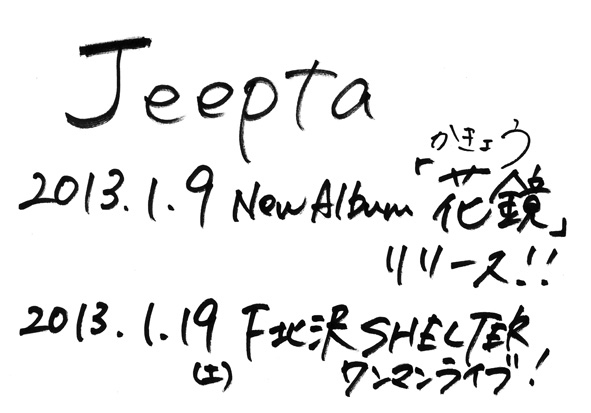 Jeepta
かきょう
2013.1.9 New Album「花鏡」
リリース!!
2013.1.19 下北沢 SHELTER
(土) ワンマンライブ!